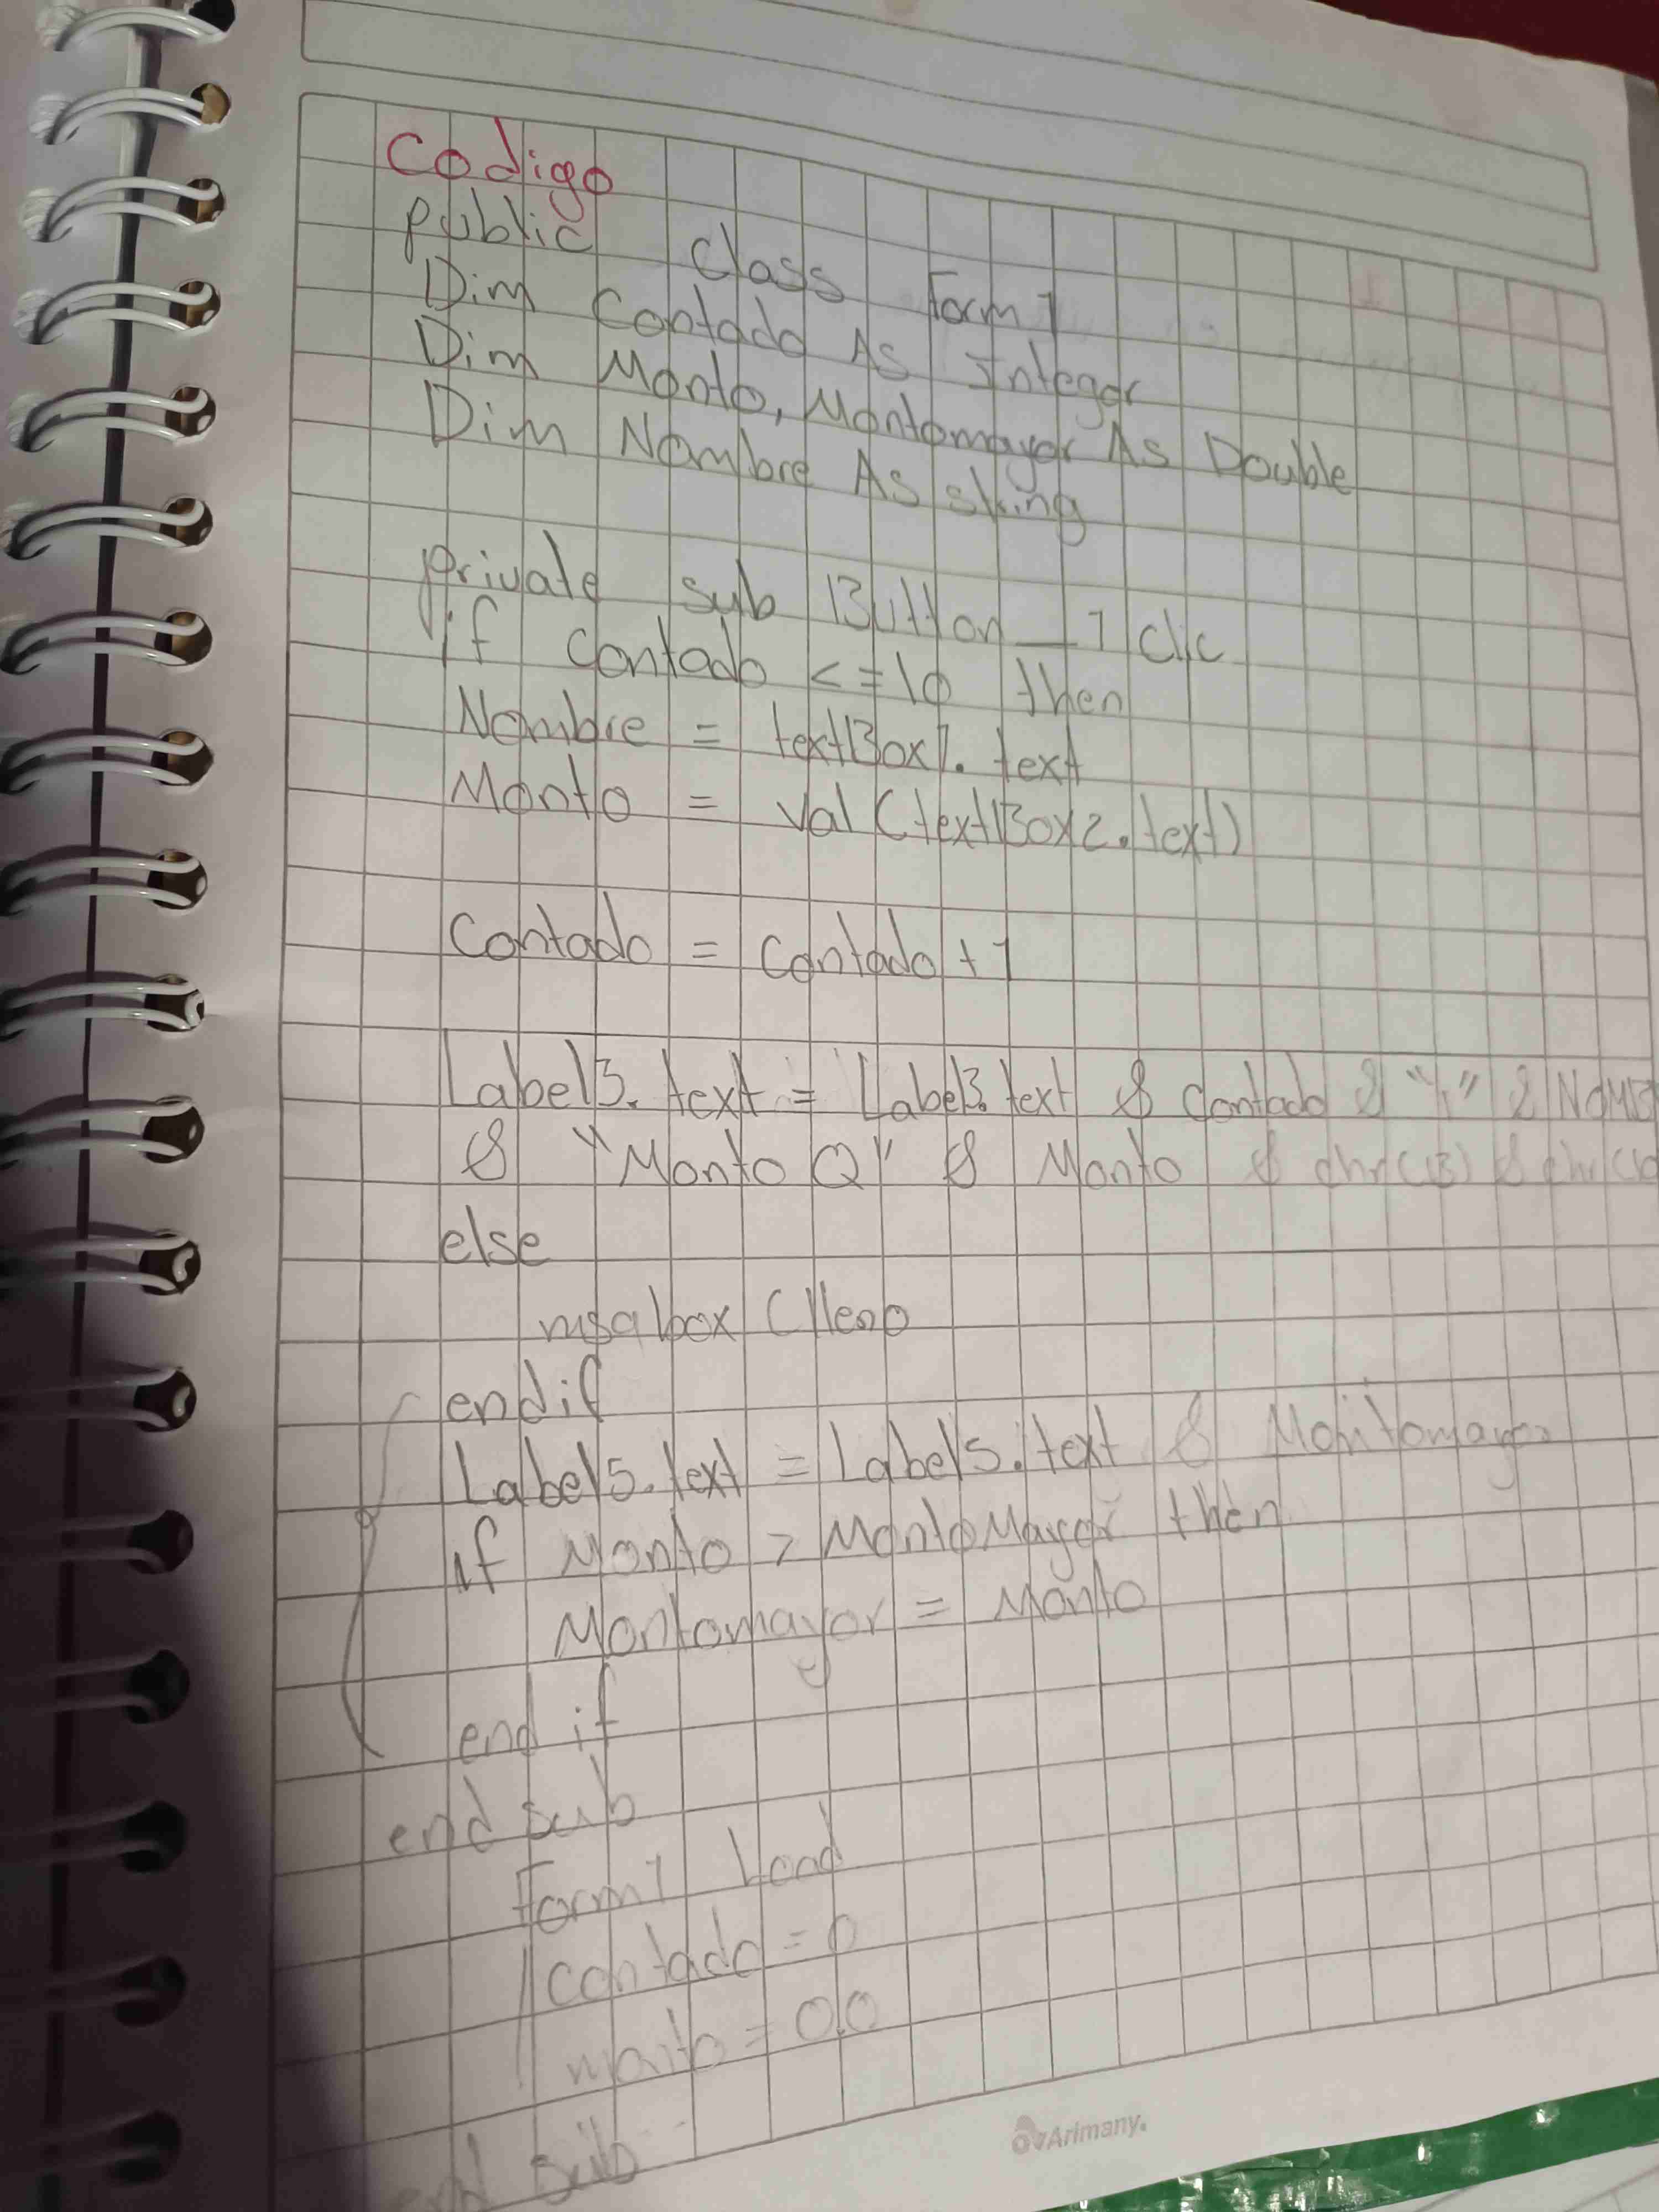 Codigo
public Class Form1
Dim Contado As Integer
Dim Monto, Montomayor As Double
Dim Nombre As string
private sub Button_1 clic
if Contado <=10 then
Nombre = textBox1. text
Monto = Val (textBox2.text)
Contado = Contado + 1
Label3. text = Label3. text & Contado & "," & NOMB
& "Monto Q" & Monto & chr(13) & chr(10
else
msgbox (lleno
endif
Label5. text = Label5. text & Montomayor
if Monto > MontoMayor then
Montomayor = Monto
end if
end sub
Form1 Load
Contado = 0
monto = 0.0
end sub
Arimany.